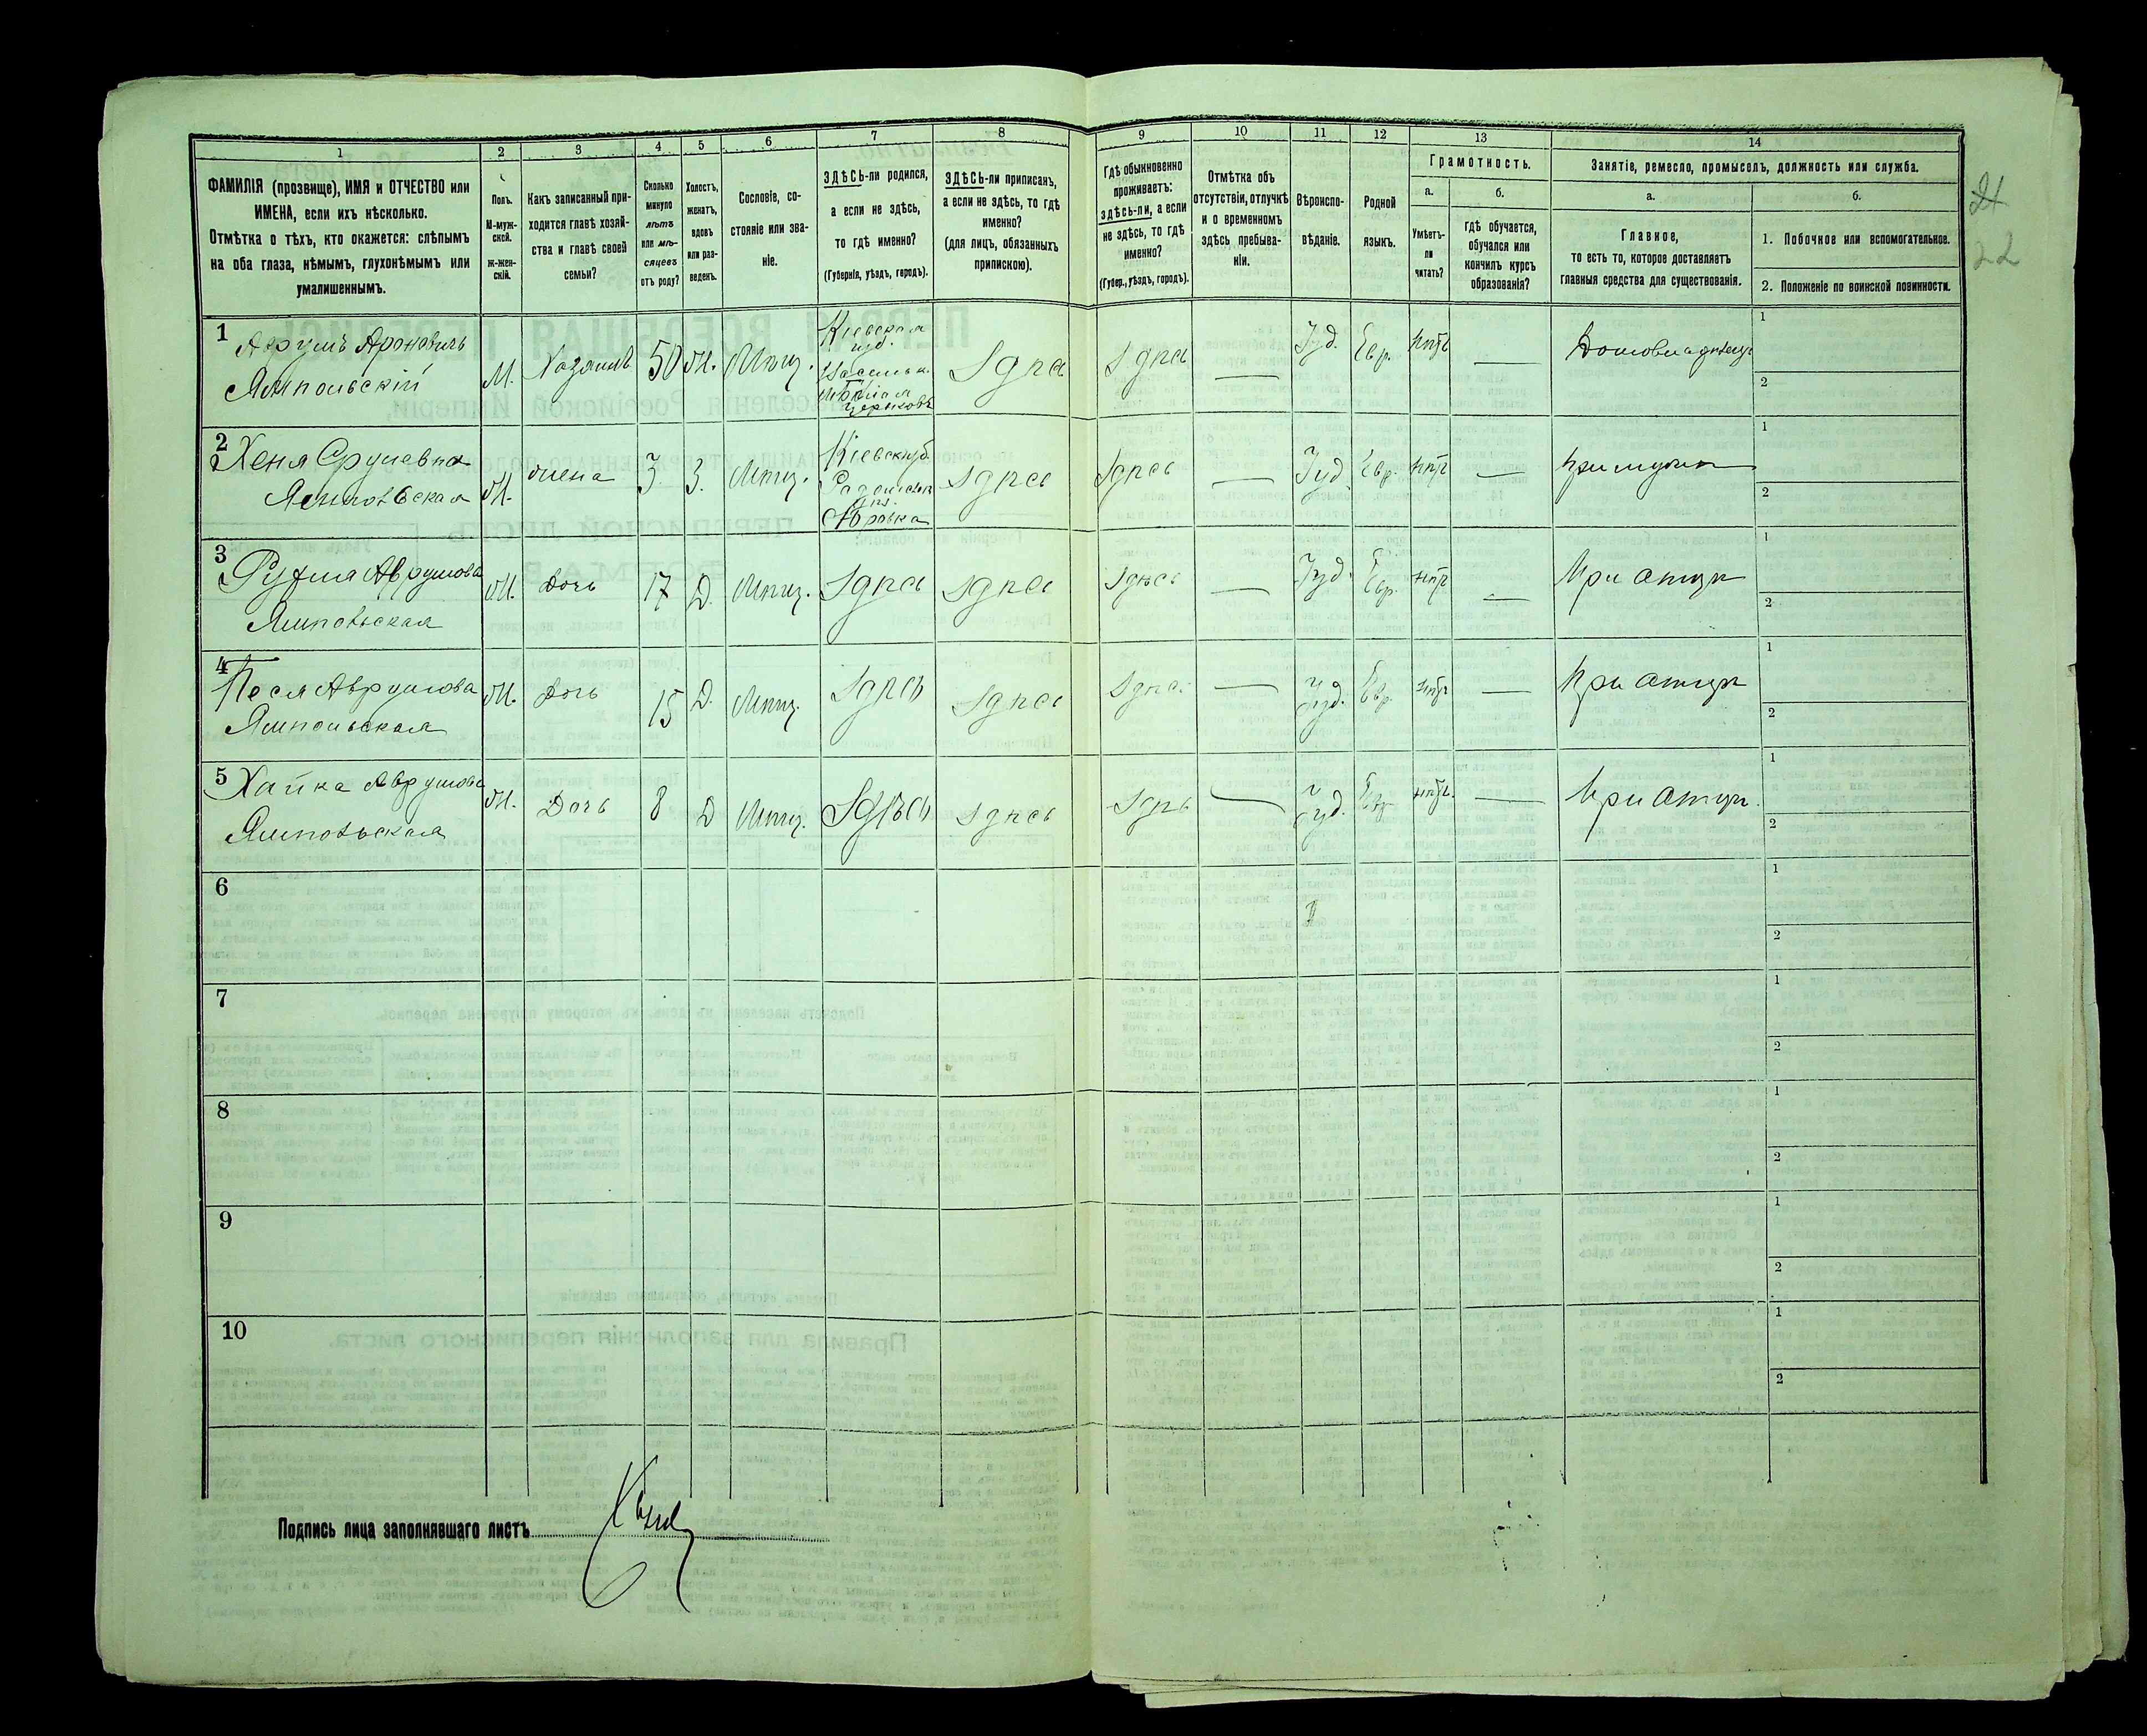 1 2 3 4 5 6 7 8 9 10 11 12 13 14
ФАМИЛІЯ (прозвище), ИМЯ и ОТЧЕСТВО или
ИМЕНА, если ихъ нѣсколько.
Отмѣтка о тѣхъ, кто окажется: слѣпымъ
на оба глаза, нѣмымъ, глухонѣмымъ или
умалишеннымъ.
Полъ.
М-муж-
ской.
Ж-жен-
скій.
Какъ записанный при-
ходится главѣ хозяй-
ства и главѣ своей
семьи?
Сколько
минуло
лѣтъ
или мѣ-
сяцевъ
отъ роду?
Холостъ,
женатъ,
вдовъ
или раз-
веденъ.
Сословіе, со-
стояніе или зва-
ніе.
ЗДѢСЬ-ли родился,
а если не здѣсь,
то гдѣ именно?
(Губернія, уѣздъ, городъ).
ЗДѢСЬ-ли приписанъ,
а если не здѣсь, то гдѣ
именно?
(для лицъ, обязанныхъ
припискою).
Гдѣ обыкновенно
проживаетъ:
здѣсь-ли, а если
не здѣсь, то гдѣ
именно?
(Губер., уѣздъ, городъ).
Отмѣтка объ
отсутствіи, отлучкѣ
и о временномъ
здѣсь пребыва-
ніи.
Вѣроиспо-
вѣданіе.
Родной
языкъ.
Грамотность.
а.
Умѣетъ-
ли
читать?
б.
гдѣ обучается,
обучался или
кончилъ курсъ
образованія?
Занятіе, ремесло, промыселъ, должность или служба.
а.
Главное,
то есть то, которое доставляетъ
главныя средства для существованія.
б.
1. Побочное или вспомогательное.
2. Положеніе по воинской повинности.
21
22
1
Аврумъ Ароновичъ
Ямпольскій
М. Хозяинъ 50 Ж. Мѣщ.
Кіевская
губ.
Бѣлая
Церковь
Здѣсь Здѣсь — Іуд. Евр. нѣтъ — Домовладѣлецъ
1
2
2
Хеня Сруль­евна
Ямпольская
Ж. жена З. Мѣщ.
Кіевск губ.
Радомысл
Здѣсь Здѣсь — Іуд. Евр. нѣтъ — при мужѣ
1
2
3
Рухля Аврумова
Ямпольская
Ж. Дочь 17 Д. Мѣщ. Здѣсь Здѣсь Здѣсь — Іуд. Евр. нѣтъ — При отцѣ
1
2
4
Песя Аврумова
Ямпольская
Ж. Дочь 15 Д. Мѣщ. Здѣсь Здѣсь Здѣсь — Іуд. Евр. нѣтъ — При отцѣ
1
2
5
Хайка Аврумова
Ямпольская
Ж. Дочь 8 Д Мѣщ. Здѣсь Здѣсь Здѣсь — Іуд. Евр. нѣтъ — При отцѣ
1
2
6
1
2
7
1
2
8
1
2
9
1
2
10
1
2
Подпись лица заполнявшаго листъ